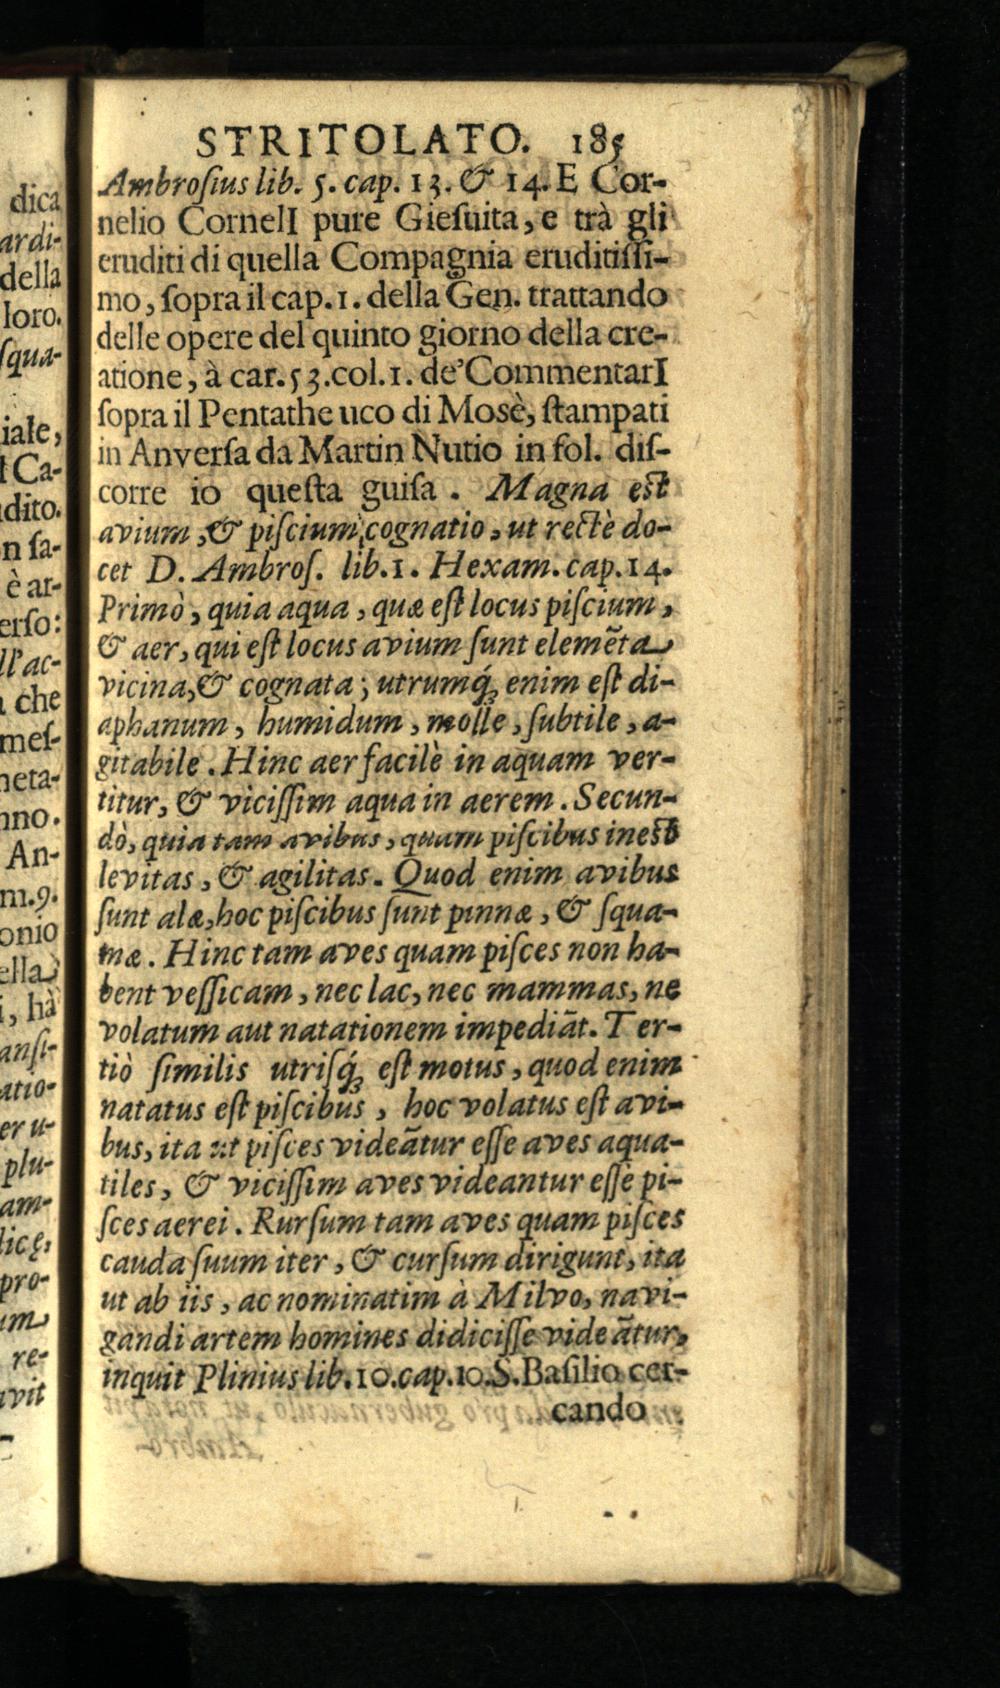 STRITOLATO. 185
Ambroſius lib. 5. cap. 13. & 14. E Cor-
nelio CornelI pure Gieſuita, e trà gli
eruditi di quella Compagnia eruditiſſi-
mo, ſopra il cap. 1. della Gen. trattando
delle opere del quinto giorno della cre-
atione, à car. 53. col. 1. de' CommentarI
ſopra il Pentathe uco di Mosè, ſtampati
in Anverſa da Martin Nutio in fol. diſ-
corre io queſta guiſa. Magna eſt
avium, & piſcium cognatio, ut rectè do-
cet D. Ambroſ. lib. 1. Hexam. cap. 14.
Primò, quia aqua, quæ eſt locus piſcium,
& aer, qui eſt locus avium ſunt elemẽta
vicina, & cognata; utrumq́; enim eſt di-
aphanum, humidum, molle, ſubtile, a-
gitabile. Hinc aer facilè in aquam ver-
titur, & viciſſim aqua in aerem. Secun-
dò, quia tam avibus, quam piſcibus ineſt
levitas, & agilitas. Quod enim avibus
ſunt alæ, hoc piſcibus ſunt pinnæ, & ſqua-
mæ. Hinc tam aves quam piſces non ha-
bent veſſicam, nec lac, nec mammas, ne
volatum aut natationem impediãt. Ter-
tiò ſimilis utriſq́; eſt motus, quod enim
natatus eſt piſcibus, hoc volatus eſt avi-
bus, ita ut piſces videãtur eſſe aves aqua-
tiles, & viciſſim aves videantur eſſe pi-
ſces aerei. Rurſum tam aves quam piſces
cauda ſuum iter, & curſum dirigunt, ita
ut ab iis, ac nominatim à Milvo, navi-
gandi artem homines didiciſſe videãtur,
inquit Plinius lib. 10. cap. 10. S. Baſilio cer-
cando
dica
ardi-
della
loro.
ſqua-
iale,
l Ca-
dito.
n ſa-
è ar-
erſo:
ll'ac-
che
meſ-
neta-
nno.
An-
m. 9.
onio
ella
i, hà
anſi-
atio-
er u-
plu-
am-
licę,
pro-
um
re-
avit